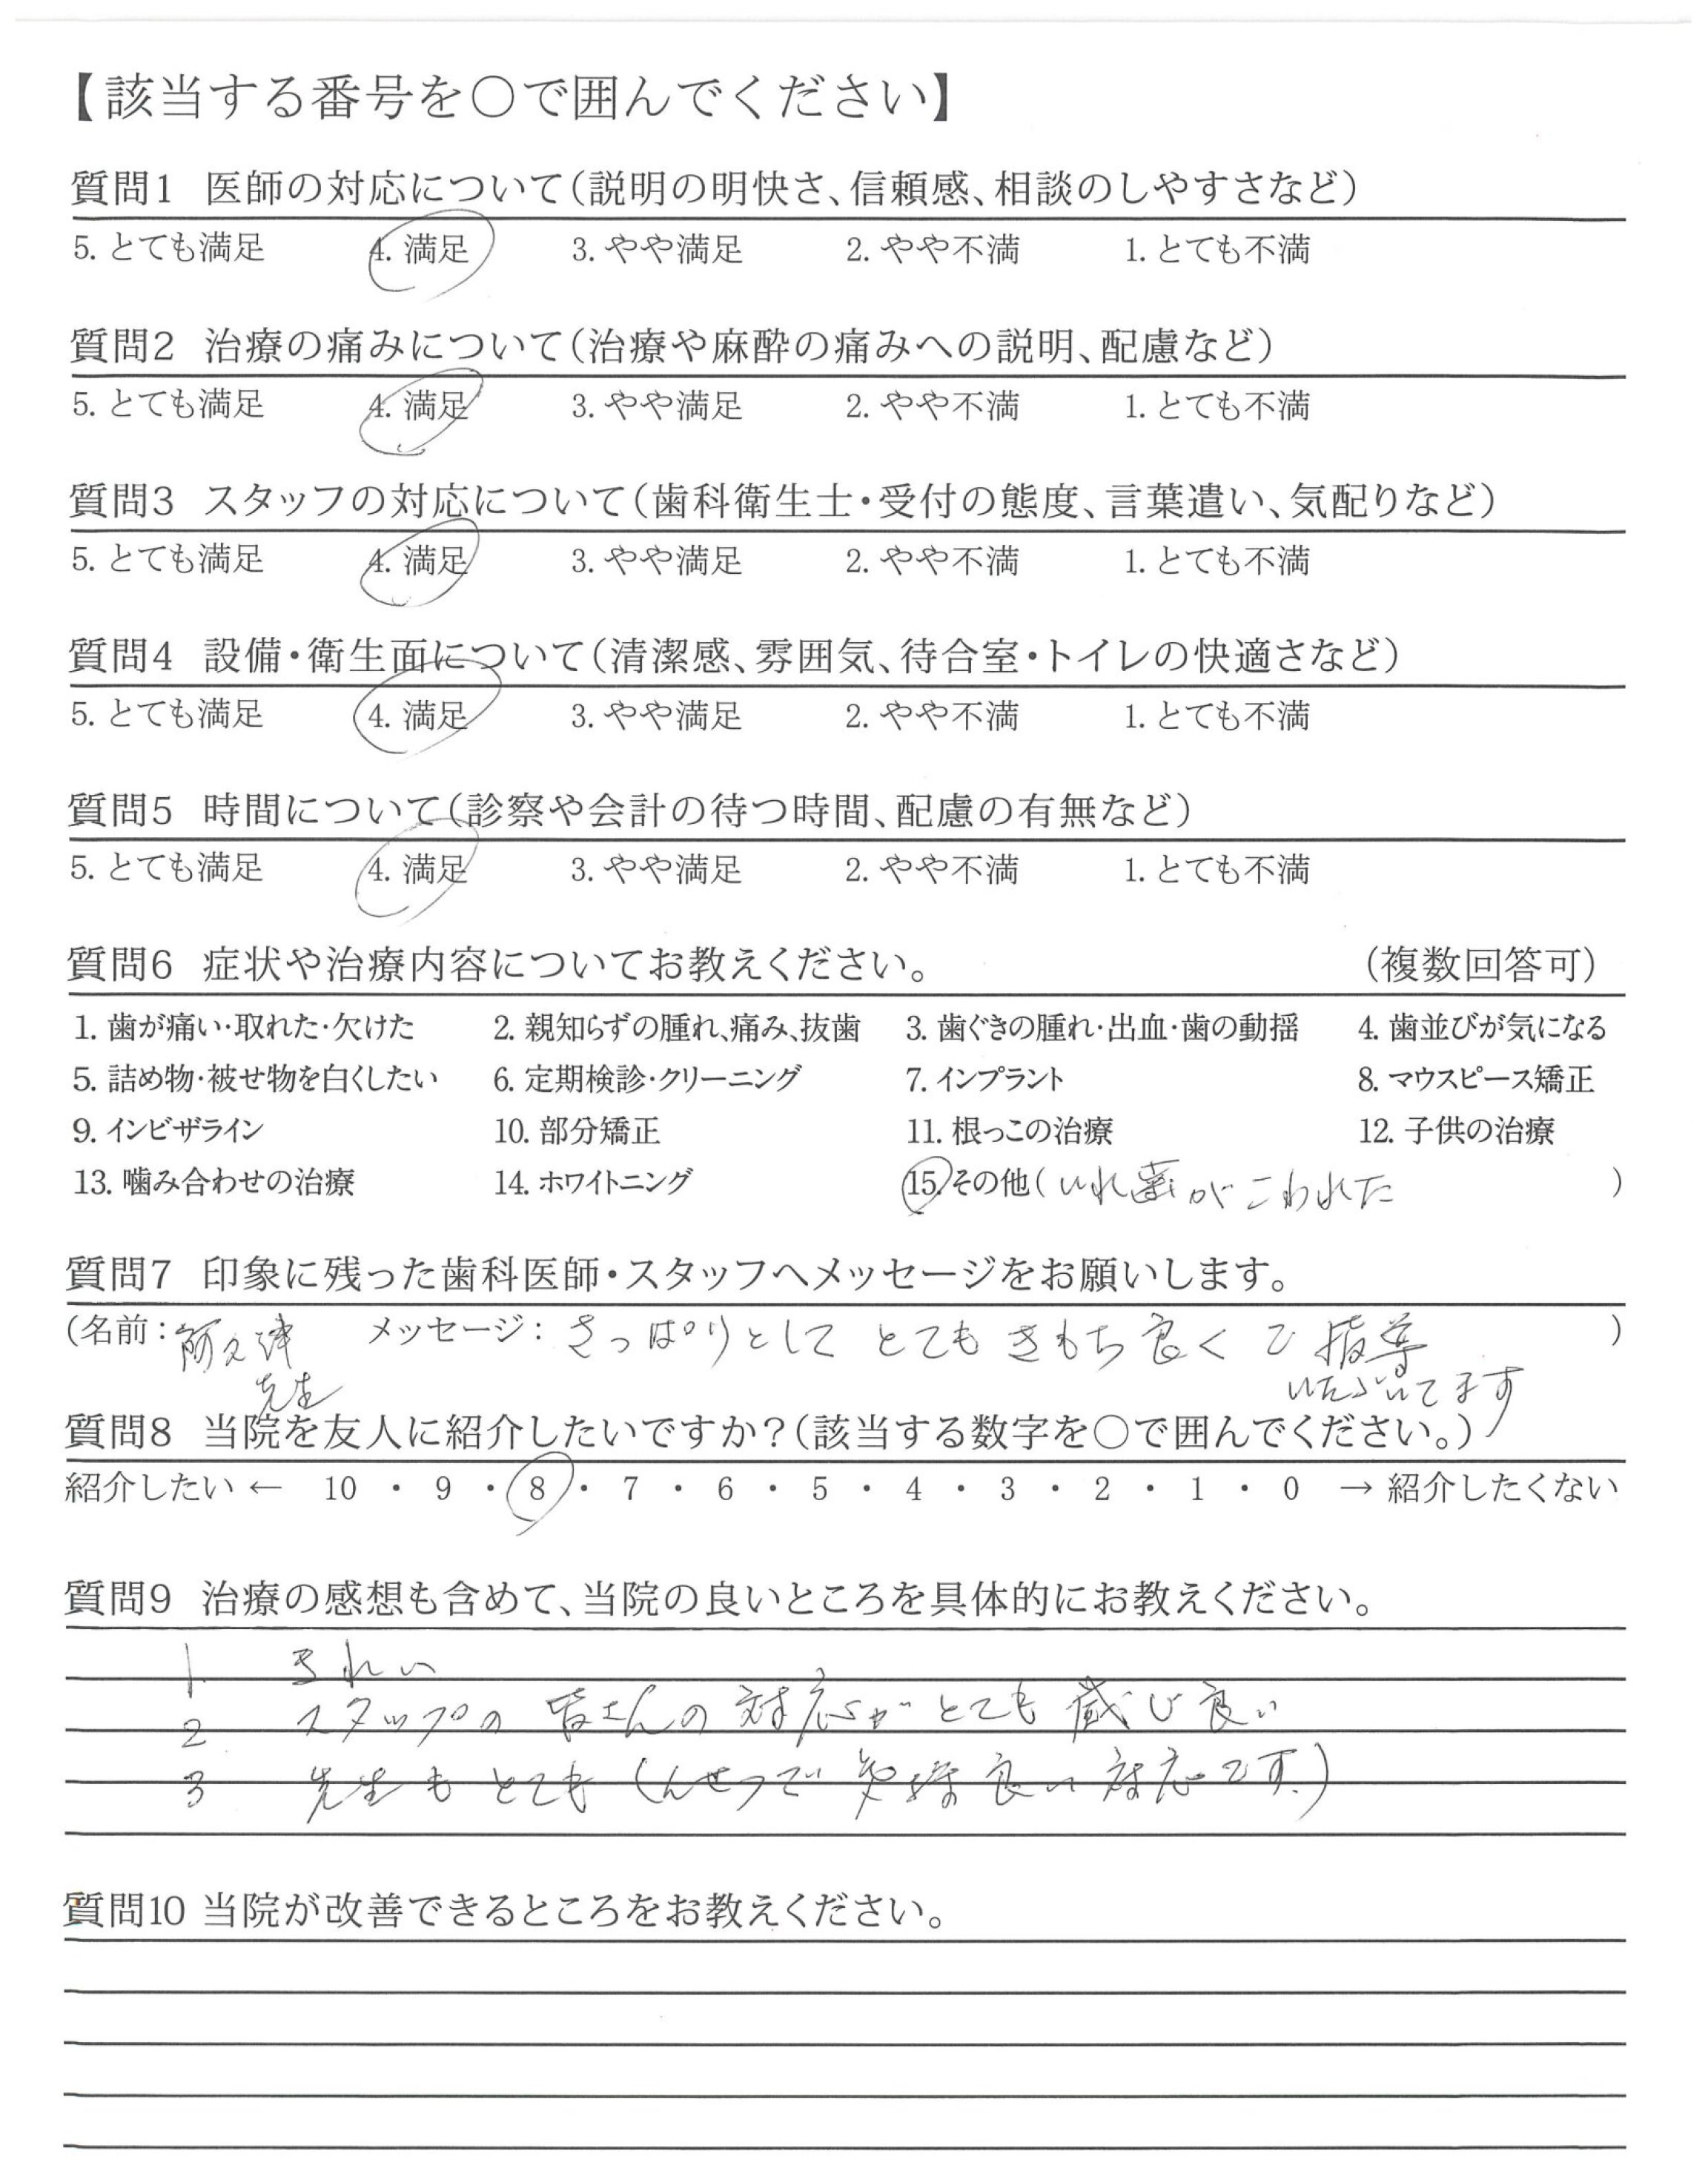 【該当する番号を〇で囲んでください】
質問1 医師の対応について(説明の明快さ、信頼感、相談のしやすさなど)
5. とても満足 4. 満足 3. やや満足 2. やや不満 1. とても不満
質問2 治療の痛みについて(治療や麻酔の痛みへの説明、配慮など)
5. とても満足 4. 満足 3. やや満足 2. やや不満 1. とても不満
質問3 スタッフの対応について(歯科衛生士・受付の態度、言葉遣い、気配りなど)
5. とても満足 4. 満足 3. やや満足 2. やや不満 1. とても不満
質問4 設備・衛生面について(清潔感、雰囲気、待合室・トイレの快適さなど)
5. とても満足 4. 満足 3. やや満足 2. やや不満 1. とても不満
質問5 時間について(診察や会計の待つ時間、配慮の有無など)
5. とても満足 4. 満足 3. やや満足 2. やや不満 1. とても不満
質問6 症状や治療内容についてお教えください。 (複数回答可)
1. 歯が痛い・取れた・欠けた 2. 親知らずの腫れ、痛み、抜歯 3. 歯ぐきの腫れ・出血・歯の動揺 4. 歯並びが気になる
5. 詰め物・被せ物を白くしたい 6. 定期検診・クリーニング 7. インプラント 8. マウスピース矯正
9. インビザライン 10. 部分矯正 11. 根っこの治療 12. 子供の治療
13. 噛み合わせの治療 14. ホワイトニング 15. その他( いれ歯がこわれた )
質問7 印象に残った歯科医師・スタッフへメッセージをお願いします。
(名前: 阿久津 メッセージ: さっぱりとして とても きもち良く ご指導 )
先生 いただいてます
質問8 当院を友人に紹介したいですか?(該当する数字を〇で囲んでください。)
紹介したい ← 10 ・ 9 ・ 8 ・ 7 ・ 6 ・ 5 ・ 4 ・ 3 ・ 2 ・ 1 ・ 0 → 紹介したくない
質問9 治療の感想も含めて、当院の良いところを具体的にお教えください。
1. きれい
2 スタップの 皆さんの 対応が とても 感じ良い
3 先生も とても しんせつで 良い 対応です。
質問10 当院が改善できるところをお教えください。